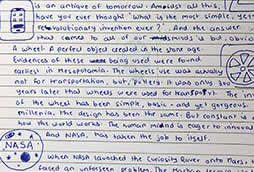 is an antique of tomorrow. Amidst all this,
have you ever thought "What is the most simple, yet
revolutionary invention ever"? And the answer
that comes to of our minds is but, obvio
A wheel! A perfect object created in the stone age.
Evidences of these being used were found
earliest in Mesopotamia. The wheels use was actually
not for transportation, but potters. It was only 300
years later that wheels were used for transport. The in
of the wheel has been simple, basic - and yet gorgeous.
millenia, the design has been the same. But constant is
how the world works. The human mind is eager to innovat
And NASA, has taken the job to itself.
NASA
When NASA launched the Curiosity Rover onto Mars, t
faced an unforeseen problem. The Martian